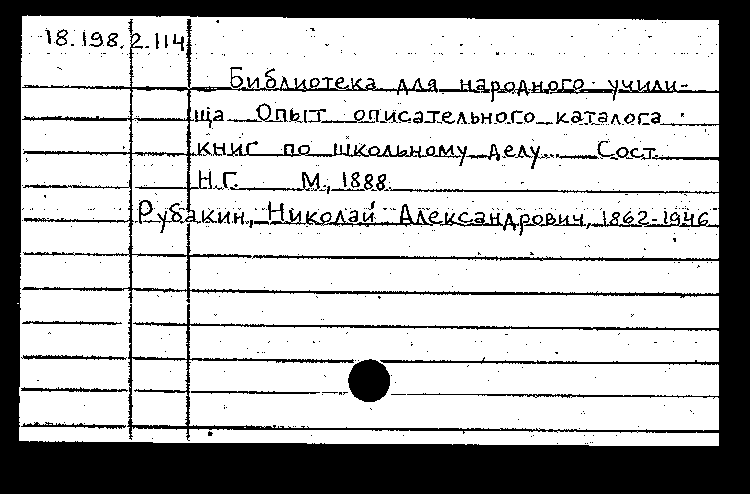 18.198.2.114
Библиотека для народного учили-
ща Опыт описательного каталога
книг по школьному делу... Сост.
Н.Г. М., 1888.
Рубакин, Николай Александрович, 1862-1946